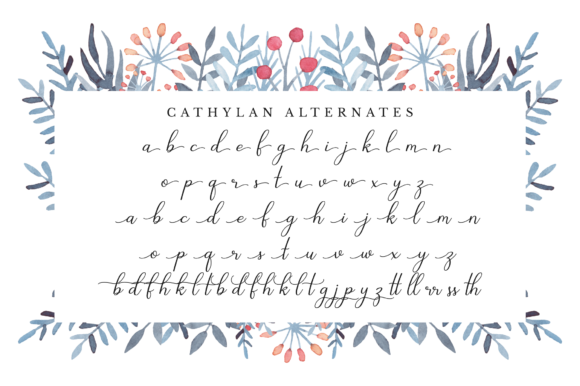 CATHYLAN ALTERNATES
a b c d e f g h i j k l m n
o p q r s t u v w x y z
a b c d e f g h i j k l m n
o p q r s t u v w x y z
b d f h k l t b d f h k l t g j p y z tt ll rr ss th